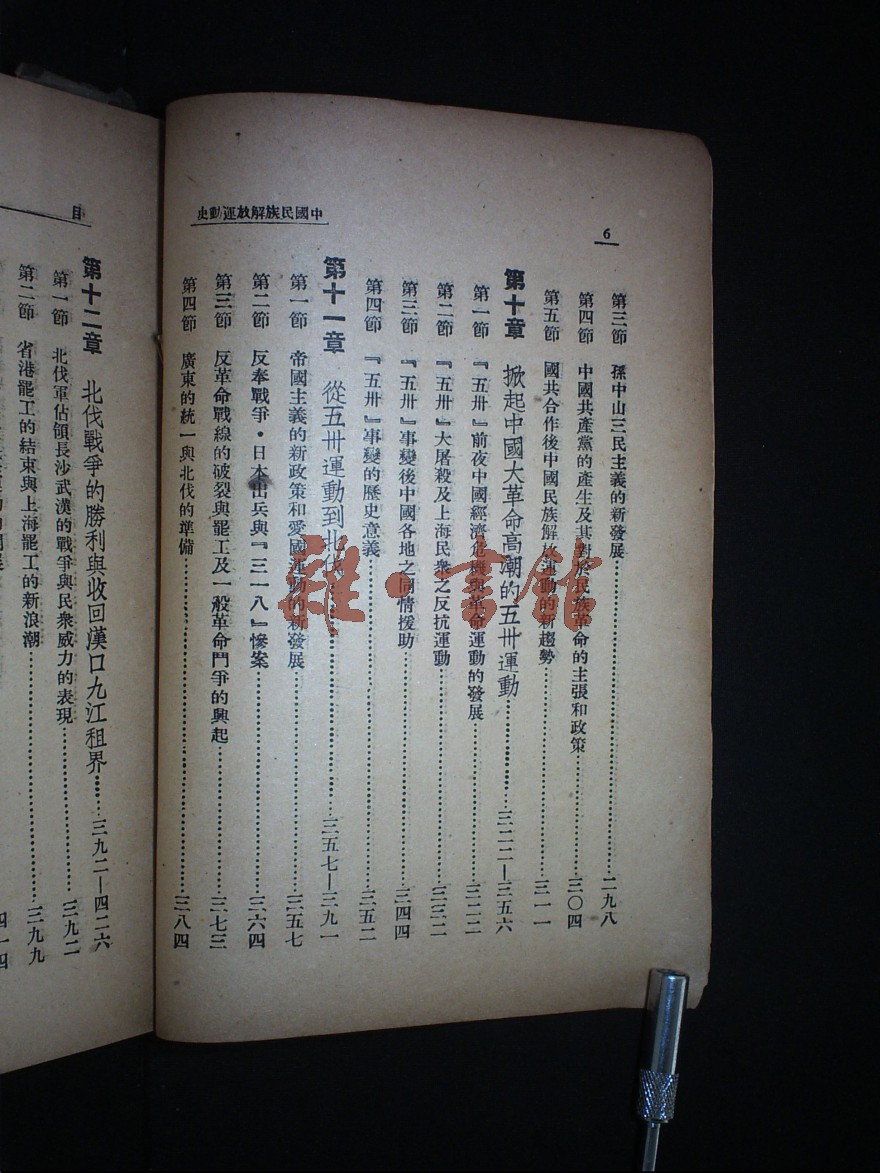 6
中國民族解放運動史
第三節 孫中山三民主義的新發展……二九八
第四節 中國共產黨的產生及其對於民族革命的主張和政策……三〇四
第五節 國共合作後中國民族解放運動的新趨勢……三一一
第十章 掀起中國大革命高潮的五卅運動……三二二—三五六
第一節 『五卅』前夜中國經濟危機與革命運動的發展……三二二
第二節 『五卅』大屠殺及上海民衆之反抗運動……三三二
第三節 『五卅』事變後中國各地之同情援助……三四四
第四節 『五卅』事變的歷史意義……三五二
第十一章 從五卅運動到北伐……三五七—三九一
第一節 帝國主義的新政策和愛國運動的新發展……三五七
第二節 反奉戰爭・日本出兵與『三一八』慘案……三六四
第三節 反革命戰線的破裂與罷工及一般革命鬥爭的興起……三七三
第四節 廣東的統一與北伐的準備……三八四
目
第十二章 北伐戰爭的勝利與收回漢口九江租界……三九二—四二六
第一節 北伐軍佔領長沙武漢的戰爭與民衆威力的表現……三九二
第二節 省港罷工的結束與上海罷工的新浪潮……三九九
四一四
雜·書館